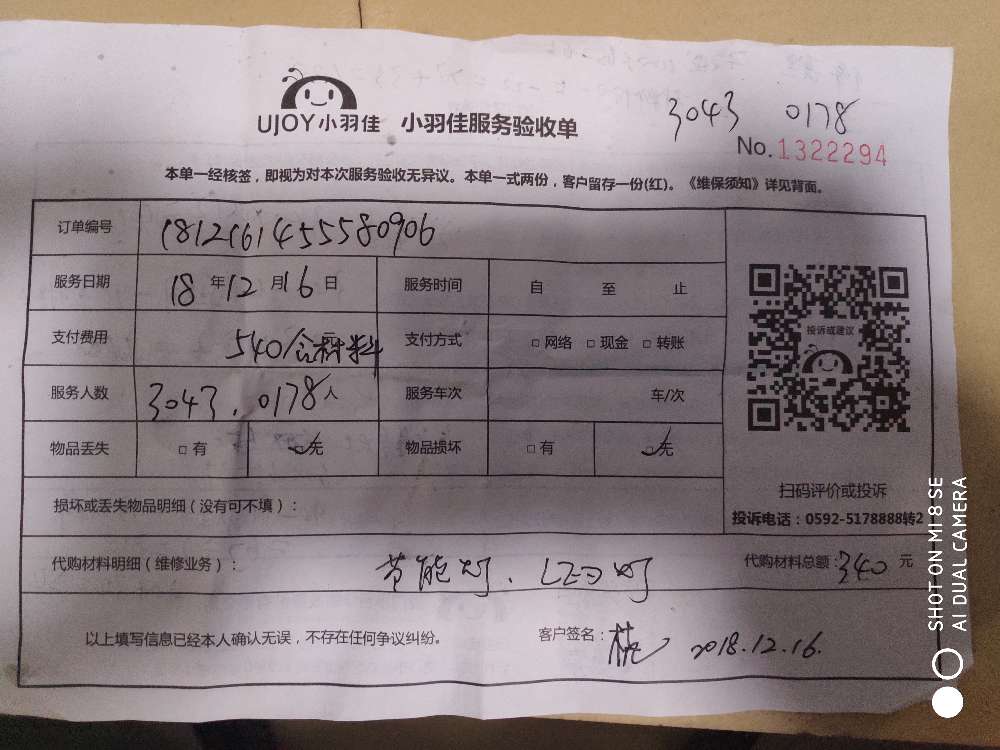 3043 0178
UJOY小羽佳 小羽佳服务验收单
No.1322294
本单一经核签，即视为对本次服务验收无异议。本单一式两份，客户留存一份(红)。《维保须知》详见背面。
订单编号 18121614555580906
服务日期 18 年 12 月 16 日 服务时间 自 至 止
支付费用 540/含材料 支付方式 □ 网络 □ 现金 □ 转账
服务人数 3043.0178 人 服务车次 车/次
物品丢失 □ 有 □ 无 物品损坏 □ 有 □ 无
投诉或建议
扫码评价或投诉
投诉电话：0592-5178888转2
损坏或丢失物品明细（没有可不填）：
代购材料明细（维修业务）： 节能灯、LED灯 代购材料总额：340 元
以上填写信息已经本人确认无误，不存在任何争议纠纷。 客户签名： 2018.12.16.
SHOT ON MI 8 SE
AI DUAL CAMERA